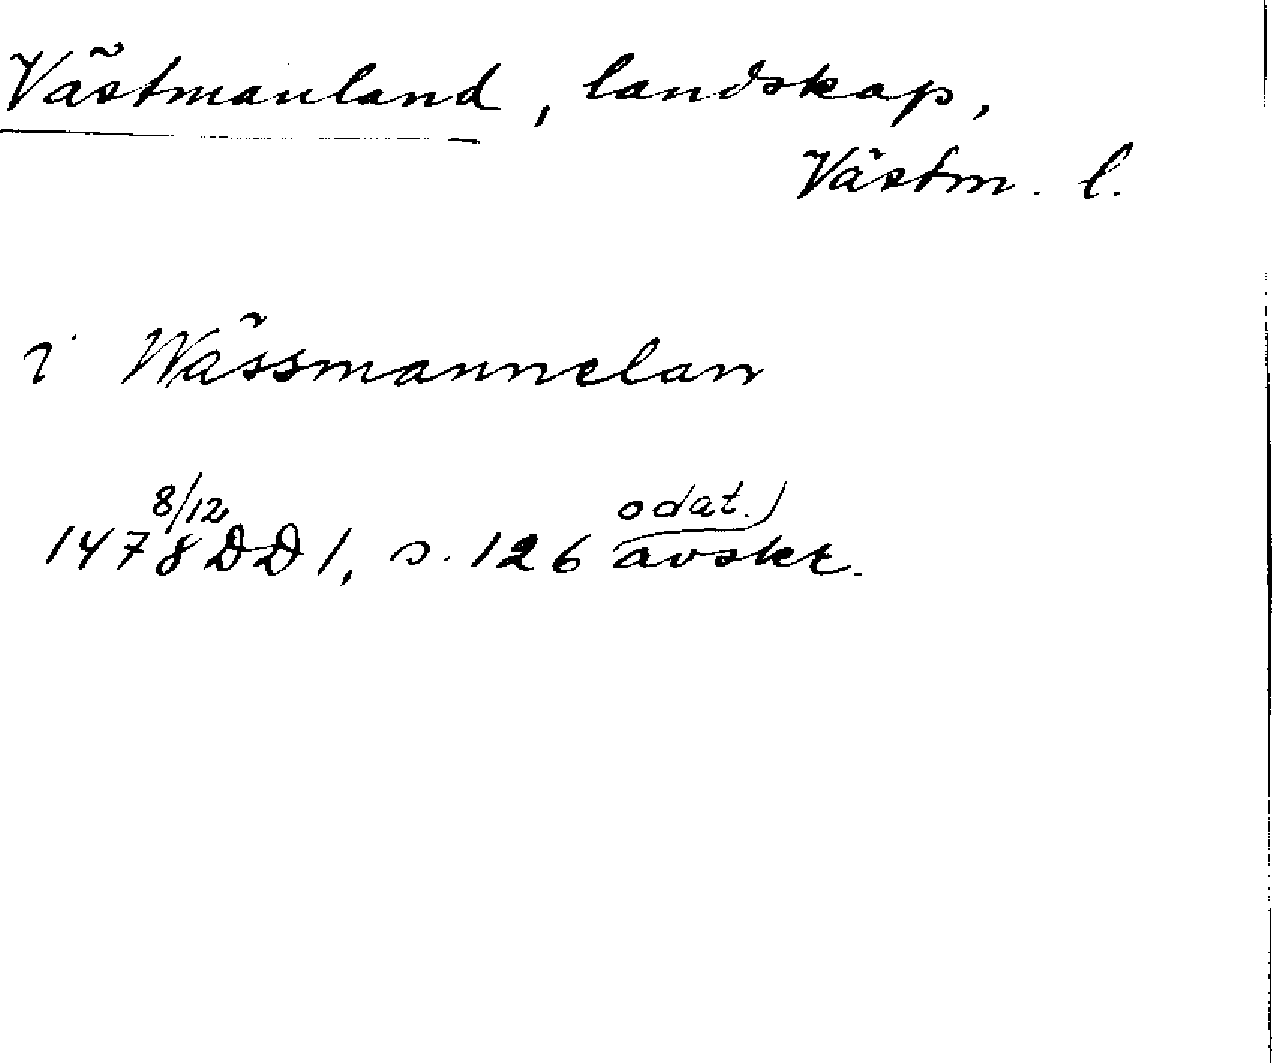 Västmanland, landskap,
Västm. l.
i Wässmannelan
1478 8/12 DD 1, s. 126 odat. avskr.